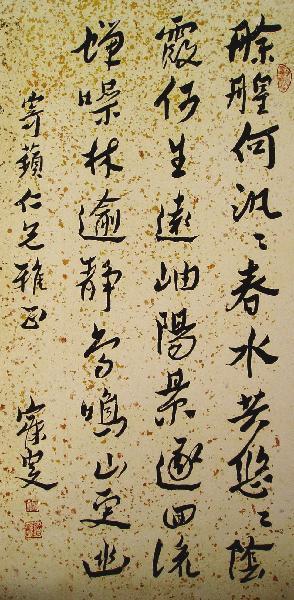 艅艎何汎〻春水共悠〻陰
霞生遠岫陽景逐回流
蟬噪林逾靜鳥鳴山更幽
寄蘋仁兄雅正
寐叟